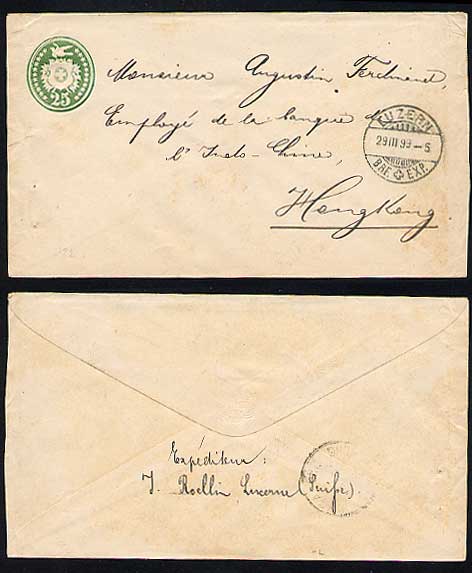 25
Monsieur Augustin Ferdinand,
Employé de la banque de
l'Indo-Chine,
Hongkong
LUZERN
29 III 99 — 6
BRF. EXP.
Expéditeur:
J. Roellin Lucerne (Suisse)